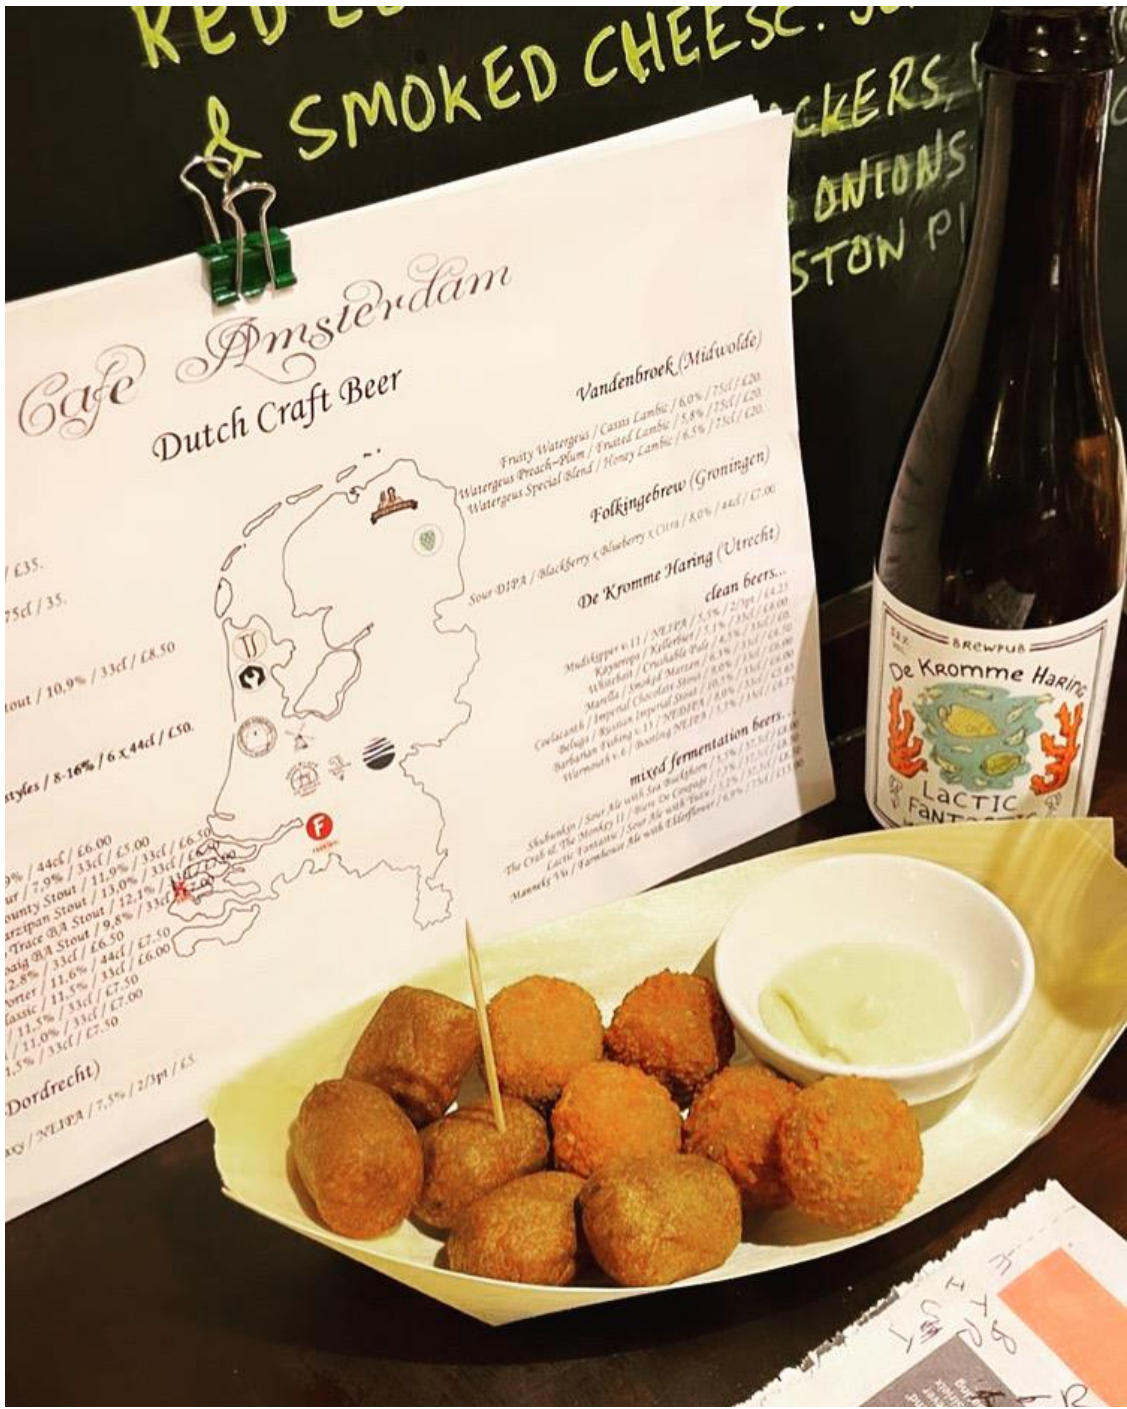 RED
& SMOKED CHEESE.
ACKERS,
ONIONS
STON PI
Cafe Amsterdam
Dutch Craft Beer
/ £35.
75cl / 35.
tout / 10,9% / 33cl / £8.50
styles / 8-16% / 6 x 44cl / £50.
9% / 44cl / £6.00
/ 7,9% / 33cl / £5.00
ounty Stout / 11,9% / 33cl / £6.50
arzipan Stout / 13,0% / 33cl / £6.50
Trace BA Stout / 12,1% / 33cl / £7.00
oaig BA Stout / 9,8% / 33cl / £7.00
2.8% / 33cl / £6.50
orter / 11.6% / 44cl / £7.50
lassic / 11,5% / 33cl / £6.00
/ 11,5% / 33cl / £7.50
/ 11,0% / 33cl / £7.00
1,5% / 33cl / £7.50
Dordrecht)
axy / NEIPA / 7,5% / 2/3pt / £5.
Vandenbroek (Midwolde)
Fruity Watergeus / Cassis Lambic / 6,0% / 75cl / £20.
Watergeus Preach-Plum / Fruited Lambic / 5,8% / 75cl / £20.
Watergeus Special Blend / Honey Lambic / 6,5% / 75cl / £20.
Folkingebrew (Groningen)
Sour DIPA / Blackberry x Blueberry x Citra / 8,0% / 44cl / £7.00
De Kromme Haring (Utrecht)
clean beers...
Mudskipper v.11 / NEIPA / 5,5% / 2/3pt / £4.25
Kayserops / Kellerbier / 5,1% / 33cl /
Whitebait / Crushable Pale / 4,5% / 33cl /
Marella / Smoked Marzen / 6,3% / 33cl /
Coelacanth / Imperial Chocolate Stout / 33cl / £6.00
Beluga / Russian Imperial Stout / 10,5% / 33cl / £6.00
Barbarian Fishing v.13 / NEDIPA / 8,0% / 33cl /
Warmouth v.6 / Bootleg NEIPA / 5,5% / 33cl /
mixed fermentation beers...
Shubunkin / Sour Ale with Sea Buckthorn / 5,5% / 37,5cl /
The Crab & The Monkey II / Biere De Coupage / 37,5cl /
Lactic Fantastic / Sour Ale with Yuzu / 5,2% / 37,5cl /
Manneks Vis / Farmhouse Ale with Elderflower / 6,0% / 75cl /
F
BREWPUB
De Kromme Haring
LACTIC
FANTASTIC